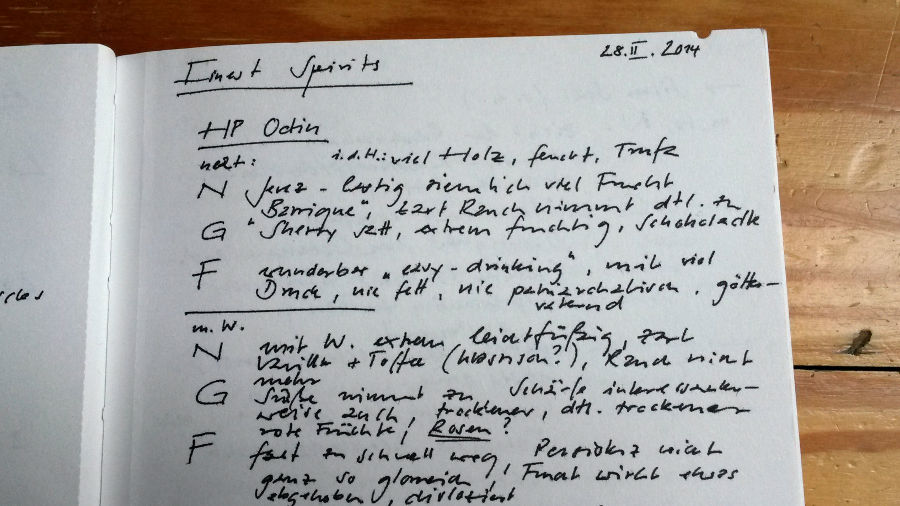 28.II.2014
Finest Spirits
HP Odin
nett: i.d.H.: viel Holz, feucht, Torf
N ziemlich viel Frucht
"Barrique", zart Rauch nimmt dtl. zu
G "Sherry satt, extrem fruchtig, Schokolade
F wunderbar "easy-drinking", mit viel
Druck, nie fett, nie patriarchalisch, götter-
vaternd
m.W.
N mit W. extrem leichtfüßig, zart
Vanille + Toffee ( ), Rauch nicht
mehr
G Süße nimmt zu Schärfe interessanter-
weise auch, trockener, dtl. trockener
rote Früchte, Rosen?
F fast zu schnell weg, Persistenz nicht
ganz so glorreich, Frucht wirkt etwas
abgehoben, disloziert